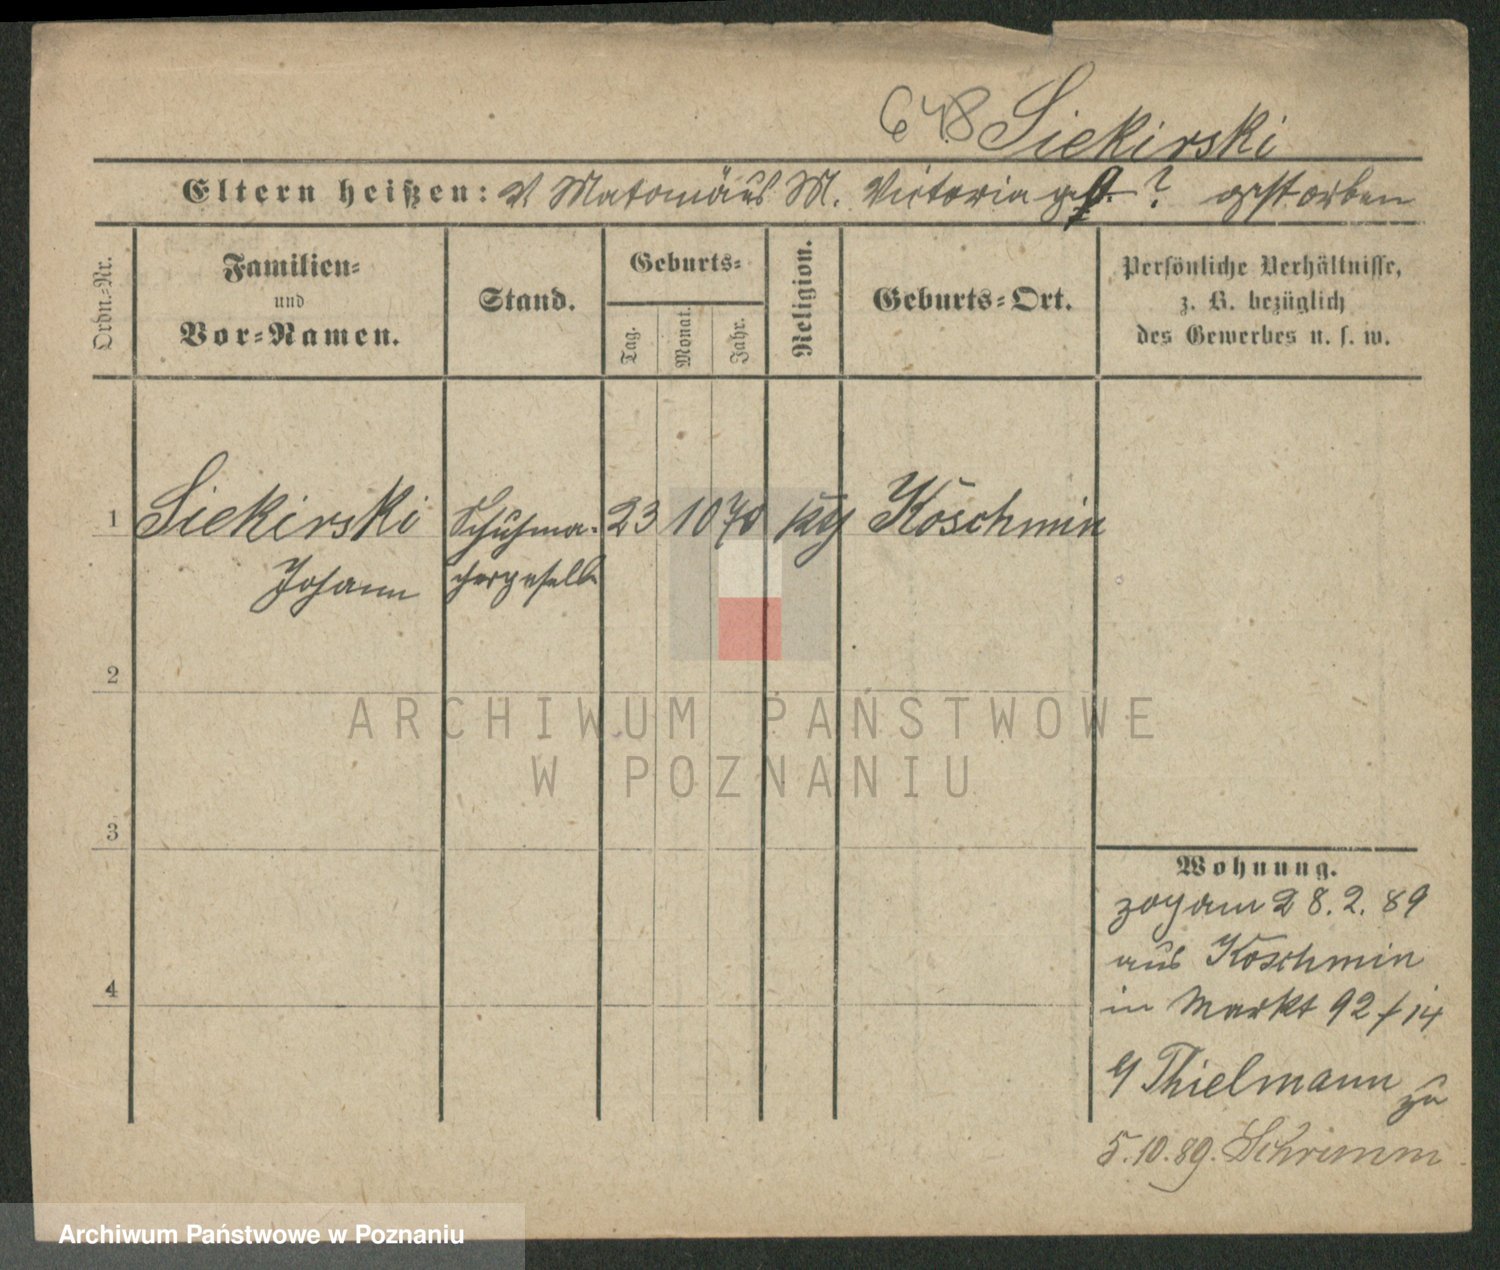 648 Siekirski
Eltern heißen: V. Matomäus M. Victoria geb. ? gestorben
Ordn.-Nr.
Familien-
und
Vor-Namen.
Stand.
Geburts-
Tag.
Monat.
Jahr.
Religion.
Geburts-Ort.
Persönliche Verhältnisse,
z. B. bezüglich
des Gewerbes u. s. w.
1 Siekirski Schuhma- 23 10 70 kth Koschmin
Johann chergeselle
2
3
4
Wohnung.
zog am 28.2.89
aus Koschmin
in Markt 92/14
Thielmann zu
5.10.89. Schrimm
ARCHIWUM PAŃSTWOWE
W POZNANIU
Archiwum Państwowe w Poznaniu